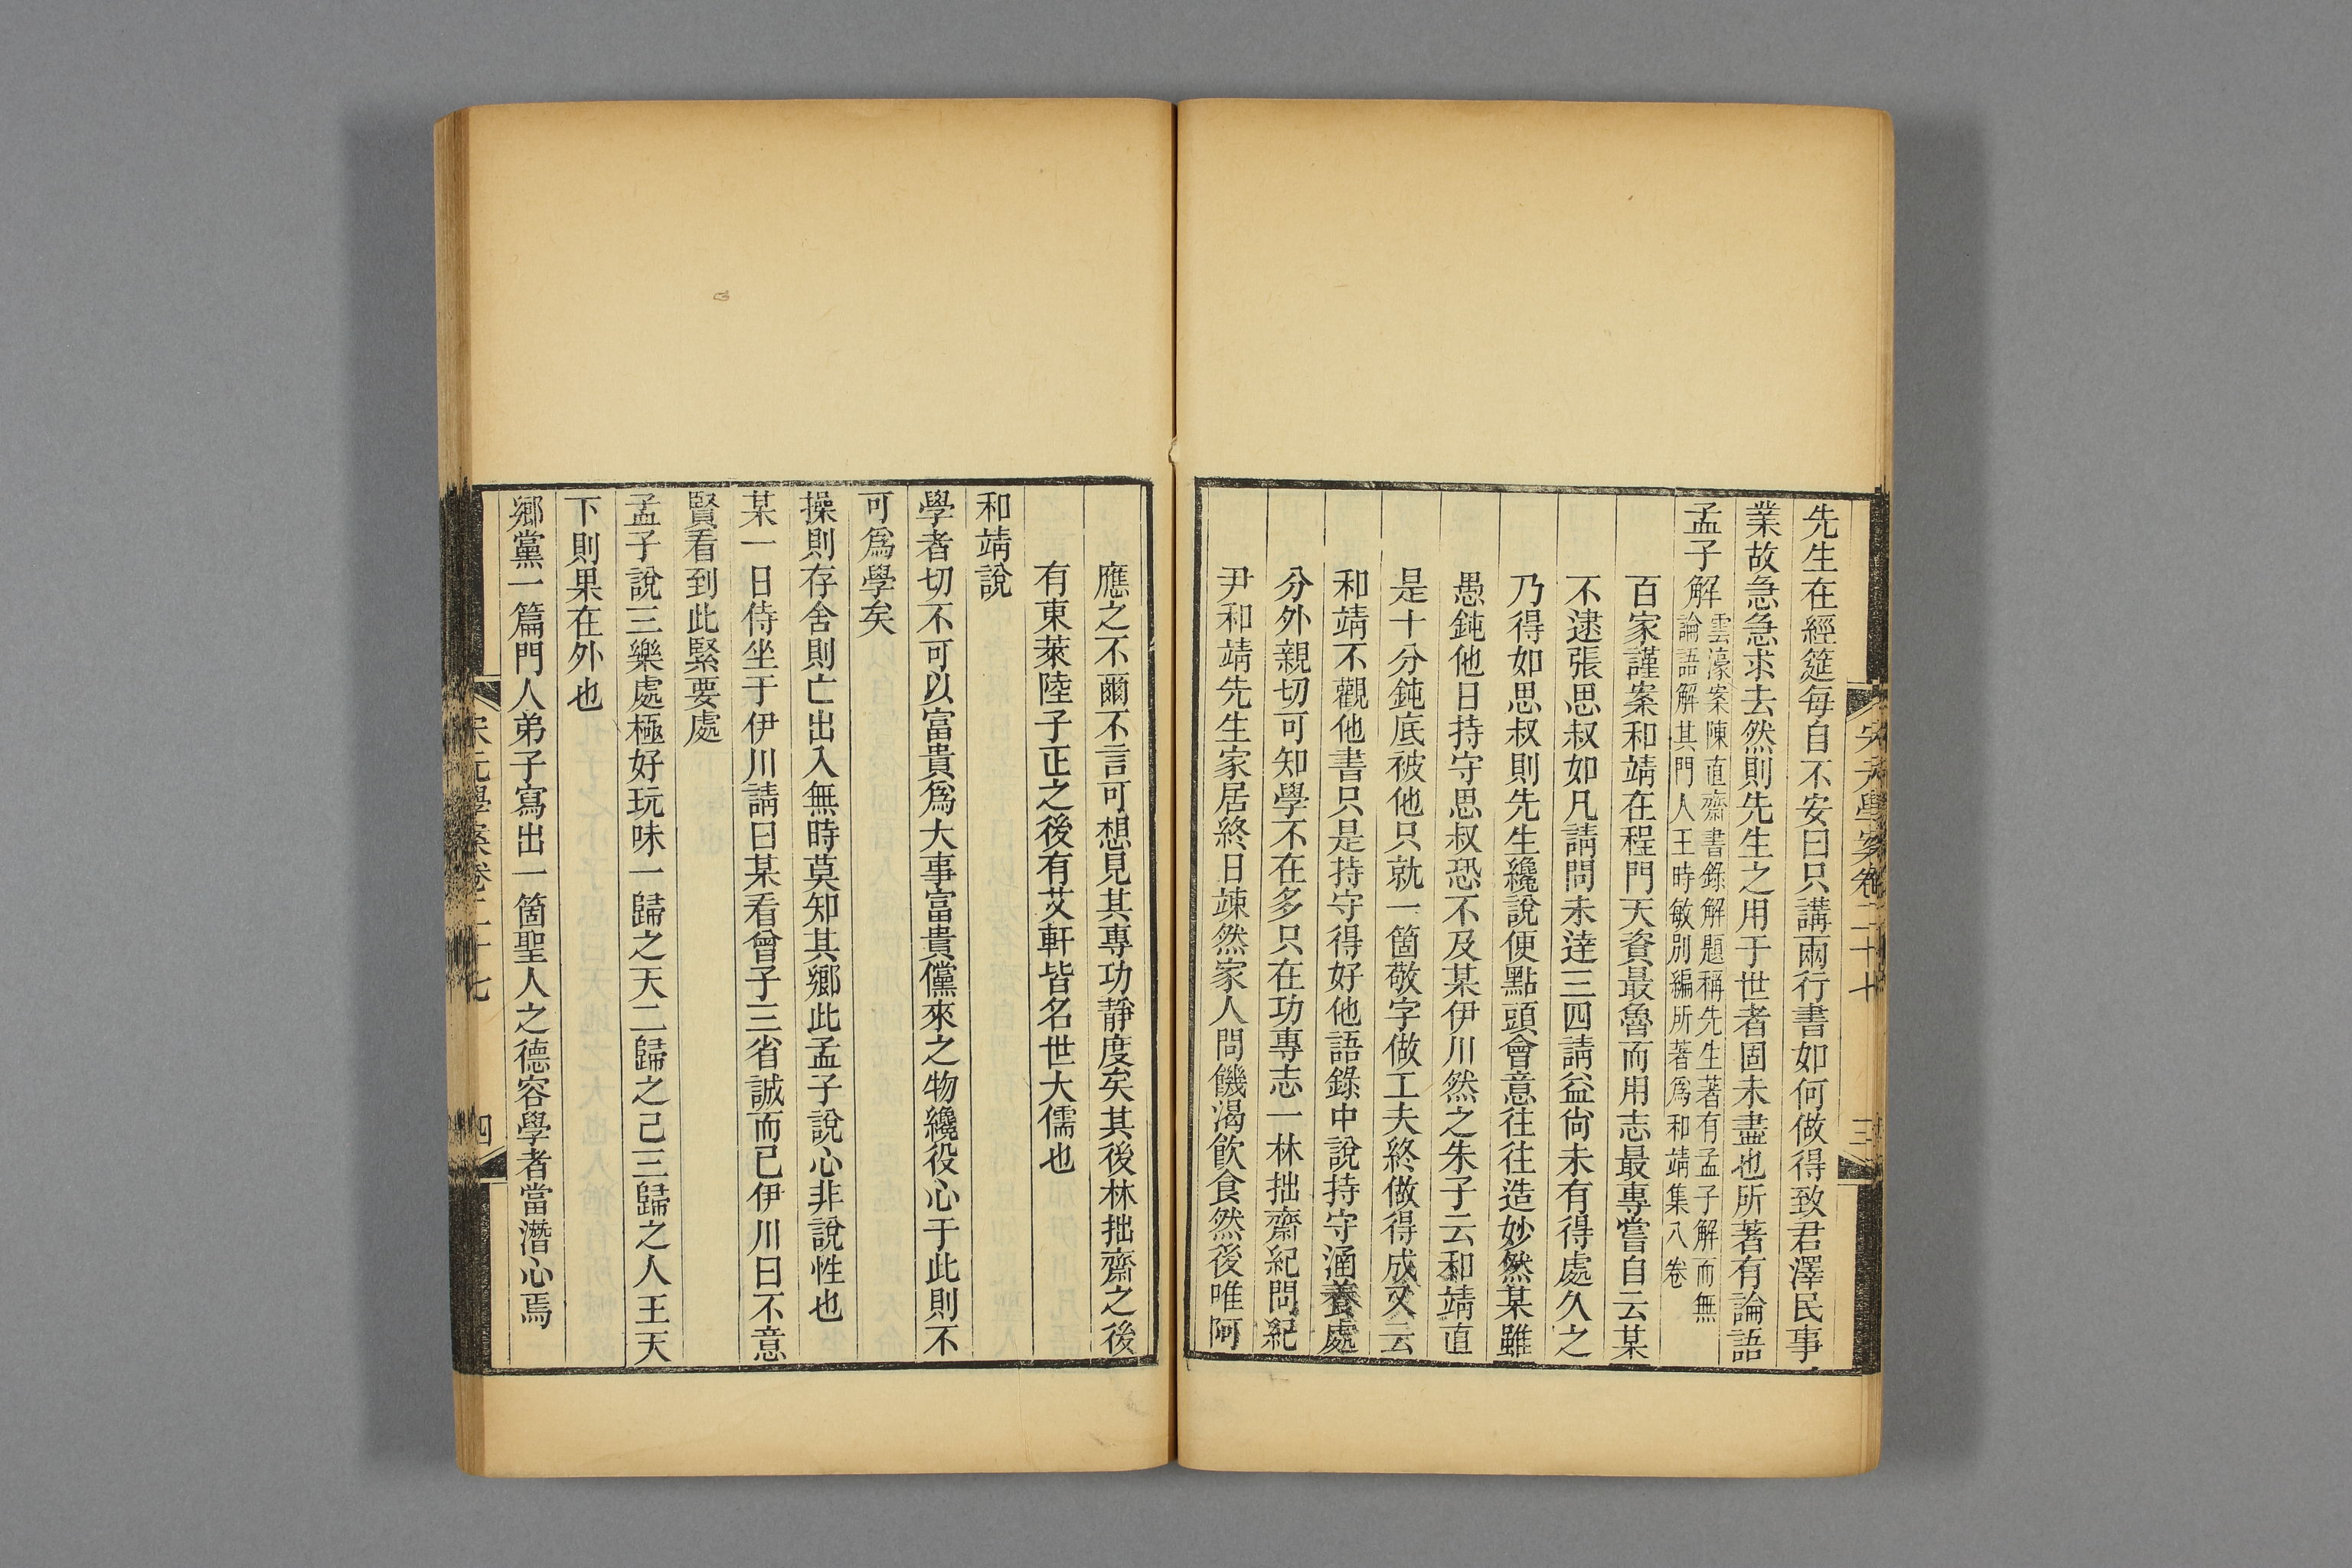 先生在經筵每自不安曰只講兩行書如何做得致君澤民事
業故急急求去然則先生之用于世者固未盡也所著有論語
孟子解
雲濠案陳直齋書錄解題稱先生著有孟子解而無
論語解其門人王時敏別編所著爲和靖集八卷
百家謹案和靖在程門天資最魯而用志最專嘗自云某
不逮張思叔如凡請問未達三四請益尙未有得處久之
乃得如思叔則先生纔說便點頭會意往往造妙然某雖
愚鈍他日持守思叔恐不及某伊川然之朱子云和靖直
是十分鈍底被他只就一箇敬字做工夫終做得成又云
和靖不觀他書只是持守得好他語錄中說持守涵養處
分外親切可知學不在多只在功專志一林拙齋紀問紀
尹和靖先生家居終日竦然家人問饑渴飮食然後唯阿
宋元學案卷二十七
三
應之不爾不言可想見其專功靜度矣其後林拙齋之後
有東萊陸子正之後有艾軒皆名世大儒也
和靖說
學者切不可以富貴爲大事富貴儻來之物纔役心于此則不
可爲學矣
操則存舍則亡出入無時莫知其鄉此孟子說心非說性也
某一日侍坐于伊川請曰某看曾子三省誠而已伊川曰不意
賢看到此緊要處
孟子說三樂處極好玩味一歸之天二歸之己三歸之人王天
下則果在外也
鄉黨一篇門人弟子寫出一箇聖人之德容學者當潛心焉
宋元學案卷二十七
四